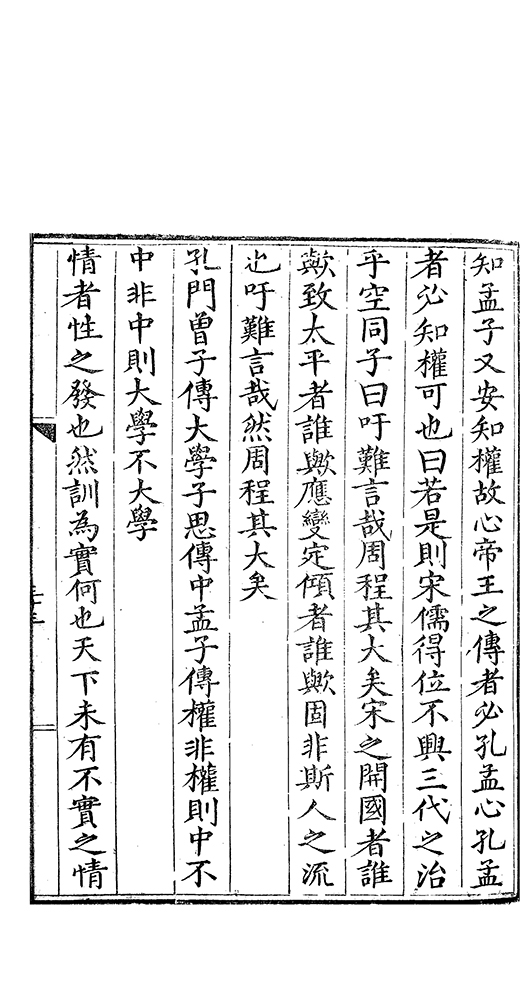 知孟子又安知權故心帝王之傳者必孔孟心孔孟
者必知權可也曰若是則宋儒得位不興三代之治
乎空同子曰吁難言哉周程其大矣宋之開國者誰
歟致太平者誰歟應變定傾者誰歟固非斯人之流
也吁難言哉然周程其大矣
孔門曾子傳大學子思傳中孟子傳權非權則中不
中非中則大學不大學
情者性之發也然訓為實何也天下未有不實之情